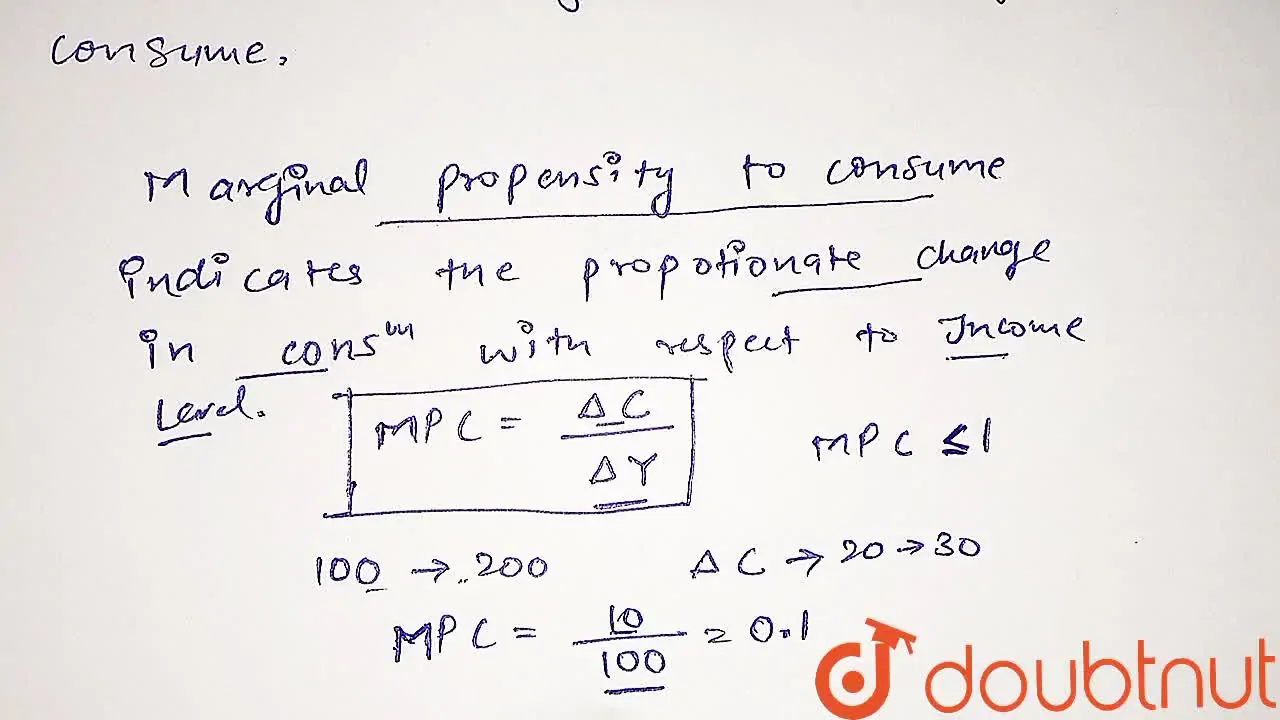 consume.
Marginal propensity to consume
indicates the propotionate change
in consᵐ with respect to Income
Level.
MPC = ΔC / ΔY
MPC ≤ 1
100 → 200
ΔC → 20 → 30
MPC = 10 / 100 = 0.1
doubtnut